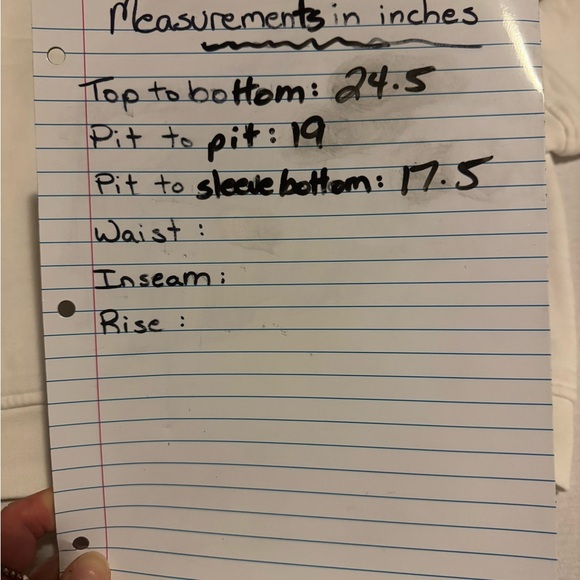 Measurements in inches
Top to bottom: 24.5
Pit to pit: 19
Pit to sleeve bottom: 17.5
Waist :
Inseam:
Rise :